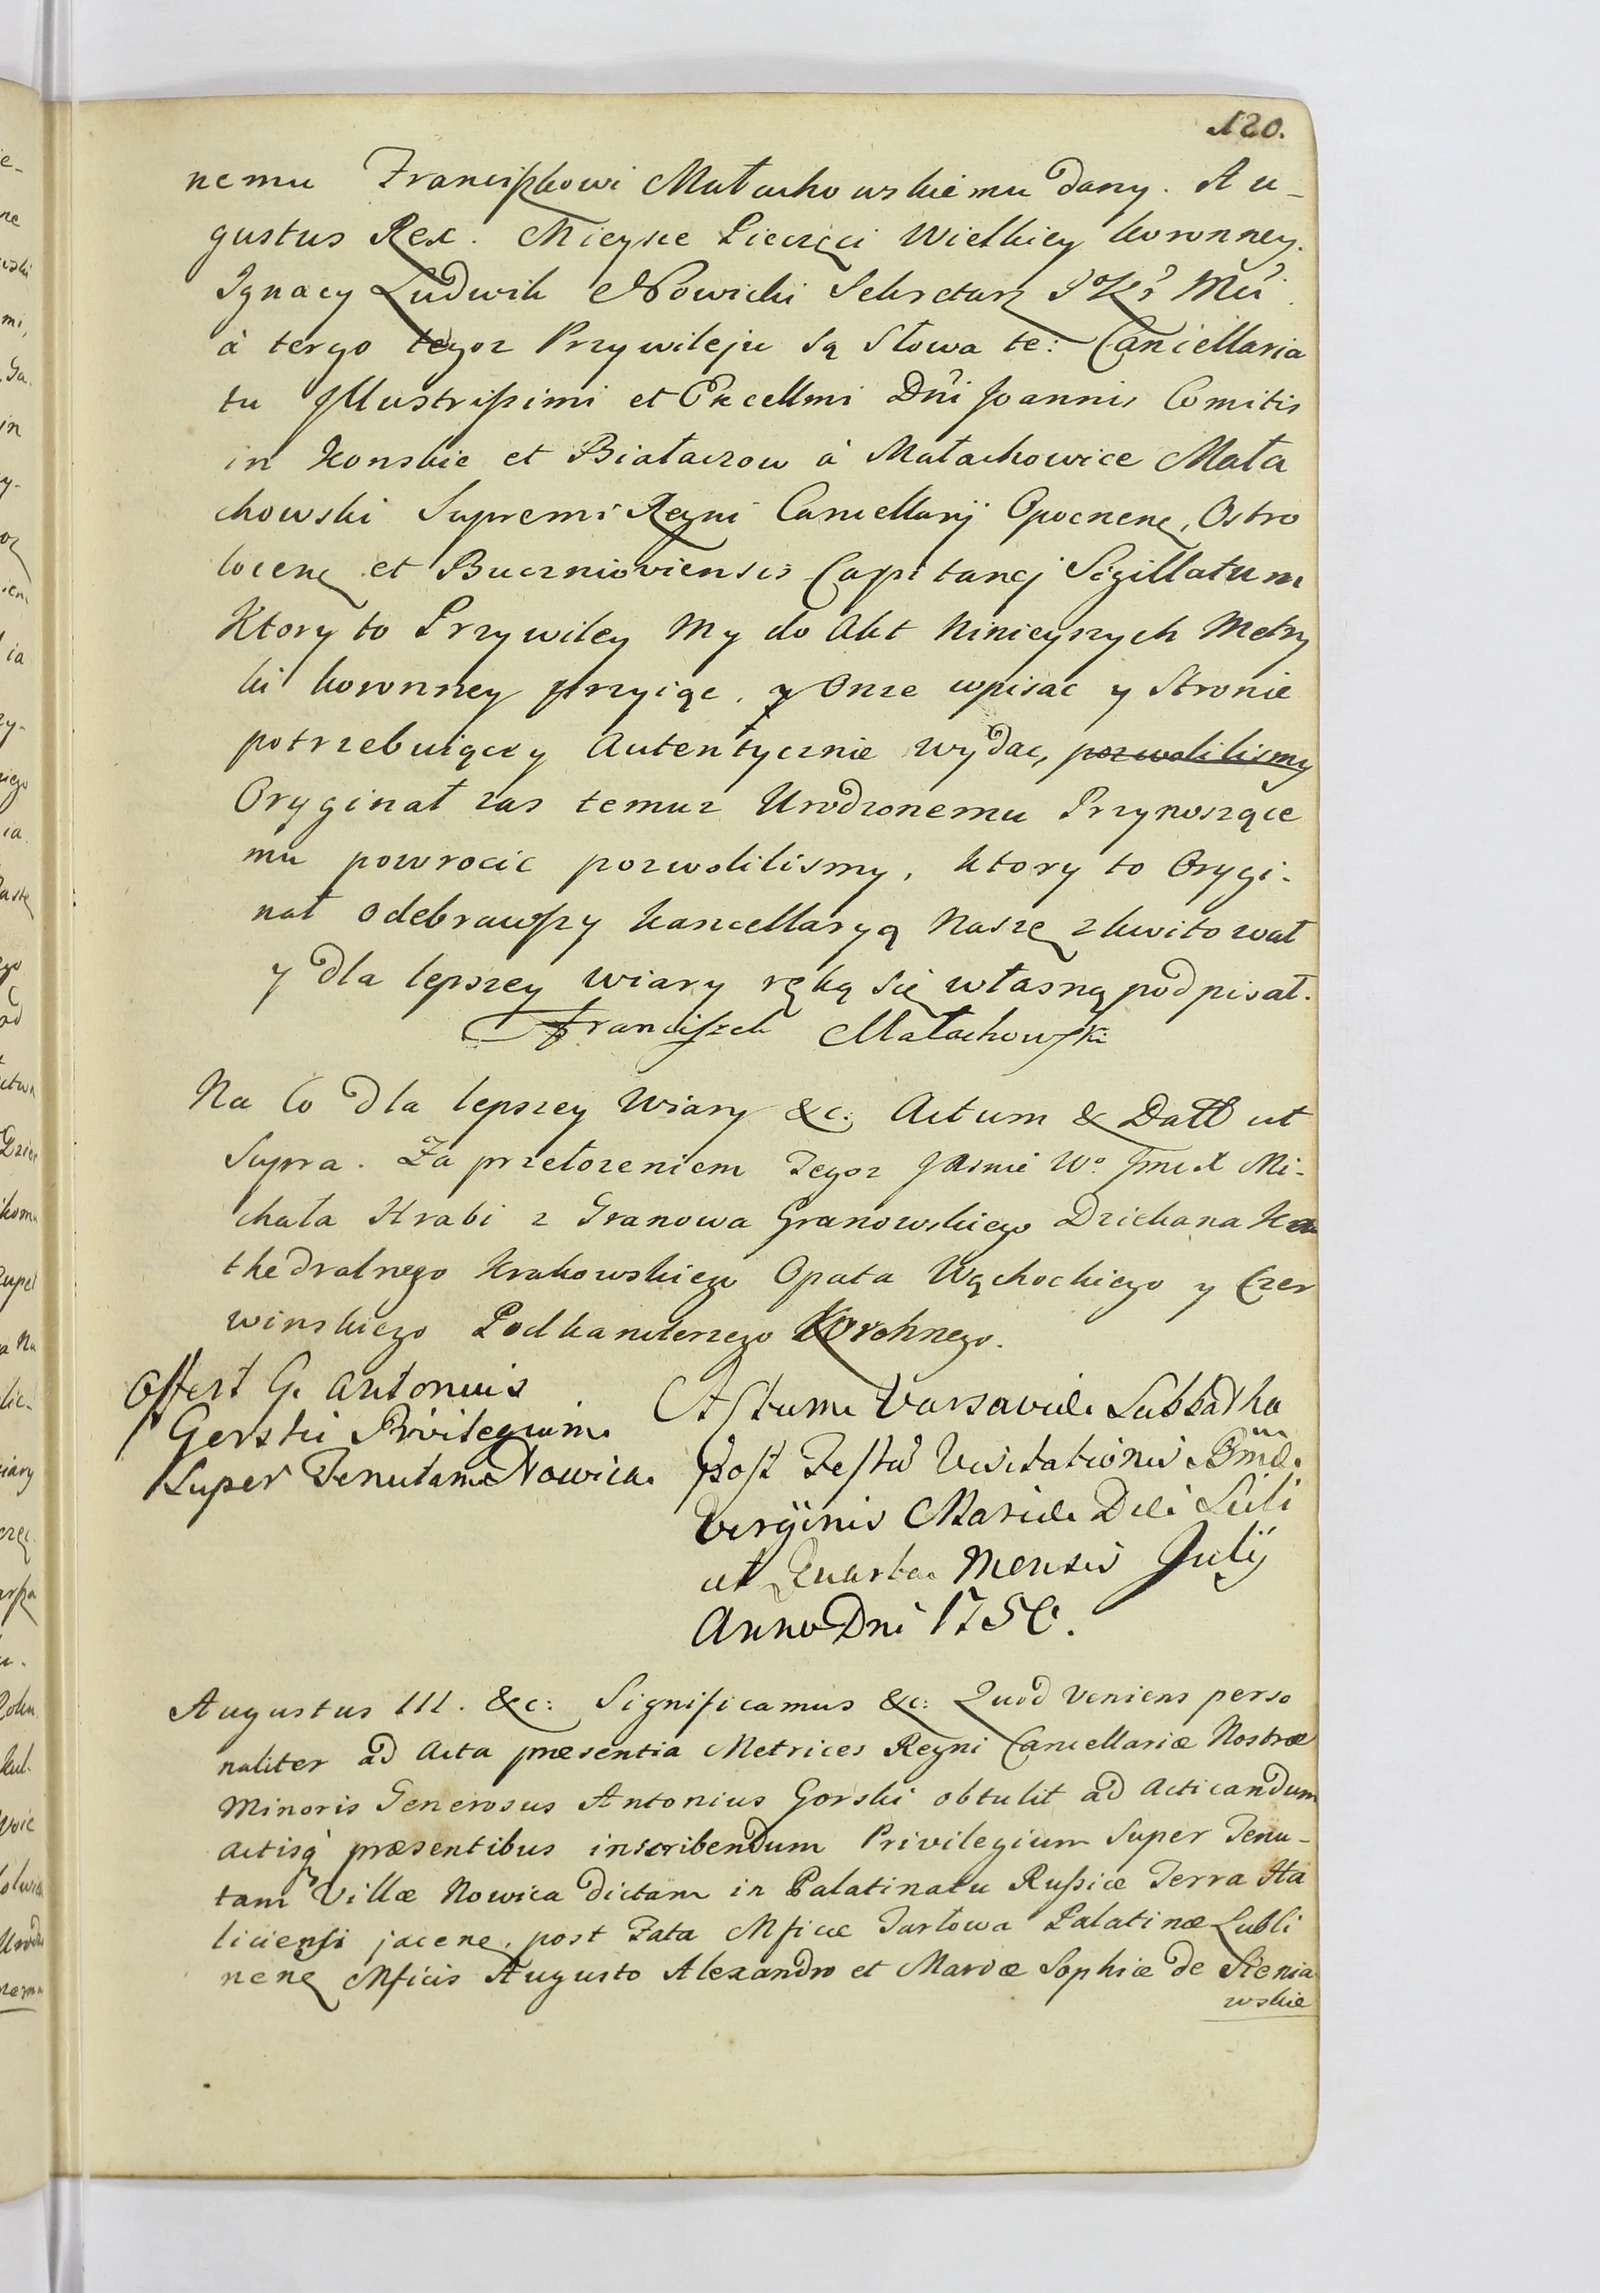 120.
nemu Franciszkowi Małachowskiemu dany. Au-
gustus Rex. Mieysce Pieczęci Wielkiey koronney.
Ignacy Ludwik Nowicki Sekretarz J K Mći
à tergo tegoz Przywileju są Słowa te: Cancellaria
tu Jllustrissimi et Excellmi Dni Joannis Comitis
in Konskie et Białaczow à Małachowice Mała
chowski Supremi Regni Cancellarij Opocnenę, Ostro
locenę et Bucznioviensis Capitanej Sigillatum
Ktory to Przywiley My do Akt Ninieyszych Metry
ki koronney przyiąc, y Onze wpisac y Stronie
potrzebuiącey Autentycznie wydac, pozwolilismy
Oryginał zas temuz Urodzonemu Przynoszące
mu powrocic pozwolilismy, ktory to Orygi-
nał odebrawszy kancellaryą Naszę zkwitował
y dla lepszey wiary ręką się własną podpisał.
Franciszek Małachowski
Na Co dla lepszey Wiary &c. Actum & Datt ut
Supra. Za przełozeniem Tegoz JAsnie Wo JmcX Mi-
chała Hrabi z Granowa Granowskiego Dziekana Ka
thedralnego Krakowskiego Opata Wąchockiego y Czer
winskiego Podkanclerzego Koronnego.
Offert G. Antonius
Gorski Privilegium
Super Tenutam Nowica.
Actum Varsaviæ Sabbatho
Post Festū Visitationis Bmæ
Virginis Mariæ Die Scili
ut Quarta Mensis Julij
Anno Dni 1750.
Augustus III. &c: Significamus &c: Quod Veniens perso
naliter ad Acta præsentia Metrices Regni Cancellariæ Nostræ
Minoris Generosus Antonius Gorski obtulit ad Acticandum
actisq præsentibus inscribendum Privilegium Super Tenu-
tam Villæ Nowica dictam in Palatinatu Russiæ Terra Ha
liciensi jacenę. post Fata Mficæ Tarłowa Palatinæ Lubli
nenę Mficis Augusto Alexandro et Mariæ Sophiæ de Sienia
wskie